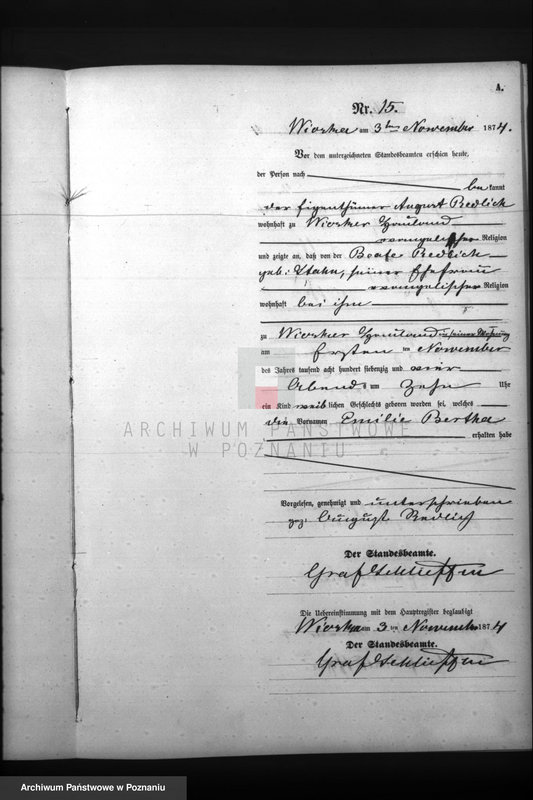 A.
Nr. 15.
Wiorka am 3ten November 1874.
Vor dem unterzeichneten Standesbeamten erschien heute,
der Person nach
bekannt
der Eigenthümer August Redlich
wohnhaft zu Wiorker Hauland
evangelischer Religion
und zeigte an, daß von der Beate Redlich
geb: Hahn, seiner Ehefrau
evangelischer Religion
wohnhaft bei ihm
zu Wiorker Hauland in seiner Wohnung
am Ersten ten November
des Jahres tausend acht hundert siebenzig und vier
Abends um Zehn Uhr
ein Kind weiblichen Geschlechts geboren worden sei, welches
die Vornamen Emilie Bertha
erhalten habe
ARCHIWUM PAŃSTWOWE
W POZNANIU
Vorgelesen, genehmigt und unterschrieben
gez: August Redlich
Der Standesbeamte.
Graf Schlieffen
Die Uebereinstimmung mit dem Hauptregister beglaubigt
Wiorka am 3 ten November 1874
Der Standesbeamte.
Graf Schlieffen
Archiwum Państwowe w Poznaniu